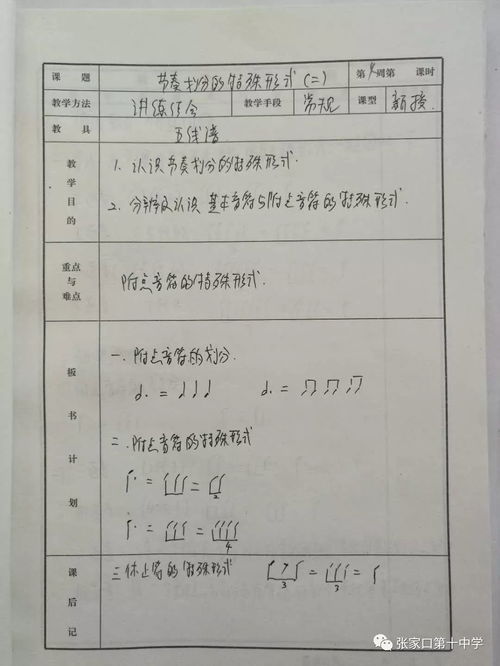 课题 节奏划分的特殊形式(二) 第4周第 课时
教学方法 讲练结合 教学手段 常规 课型 新授.
教具 五线谱
教学目的
1. 认识节奏划分的特殊形式.
2. 分辨及认识基本音符与附点音符的特殊形式.
重点与难点
附点音符的特殊形式.
板书计划
一. 附点音符的划分.
二. 附点音符的特殊形式
2
4
课后记
三 休止符的特殊形式
3
3
张家口第十中学